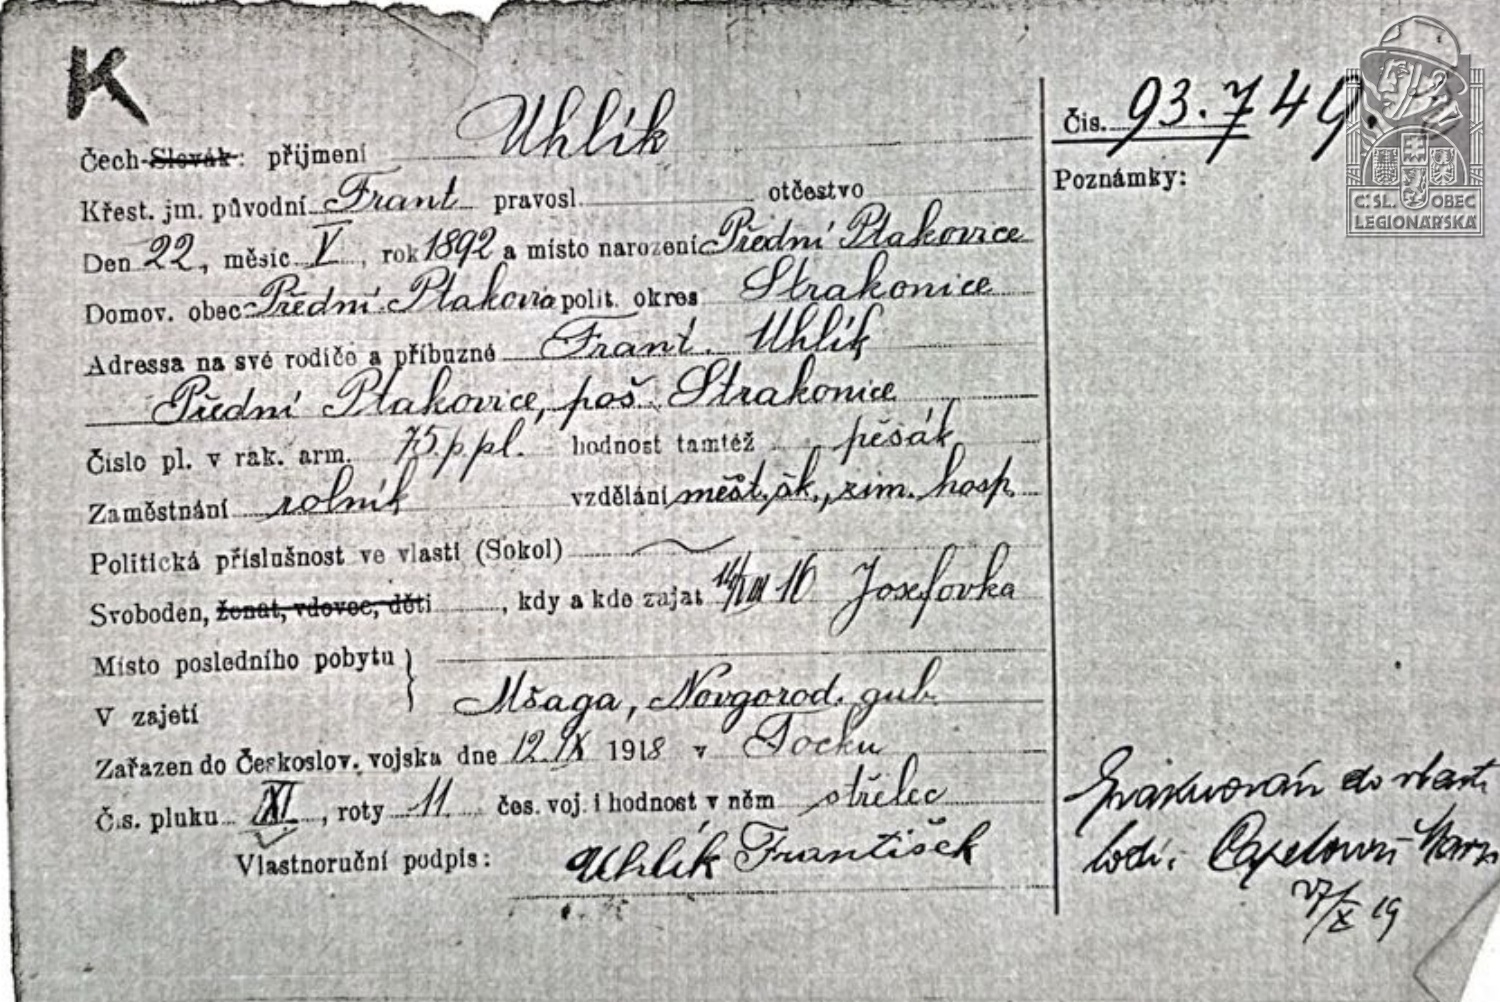 K
Čís. 93.749.
Č:SL. OBEC
LEGIONÁŘSKÁ
Čech-Slovák: příjmení Uhlík
Poznámky:
Křest. jm. původní Frant pravosl. otčestvo
Den 22, měsíc V, rok 1892 a místo narození Přední Ptakovice
Domov. obec Přední Ptakovice polit. okres Strakonice
Adressa na své rodiče a příbuzné Frant. Uhlík
Přední Ptakovice, poš. Strakonice
Číslo pl. v rak. arm. 75 p. pl. hodnost tamtéž pěšák
Zaměstnání rolník vzdělání měšt. šk., zim. hosp.
Politická příslušnost ve vlasti (Sokol)
Svoboden, ženat, vdovec, děti, kdy a kde zajat 16 Josefovka
Místo posledního pobytu
V zajetí Mšaga, Novgorod. gub.
Zařazen do Českoslov. vojska dne 12.IX 1918 v Tocku
Čís. pluku XI, roty 11. čes. voj. i hodnost v něm střelec
Vlastnoruční podpis: Uhlík František
do vlasti
lodí
X 19